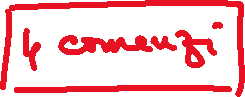 4 comenzi